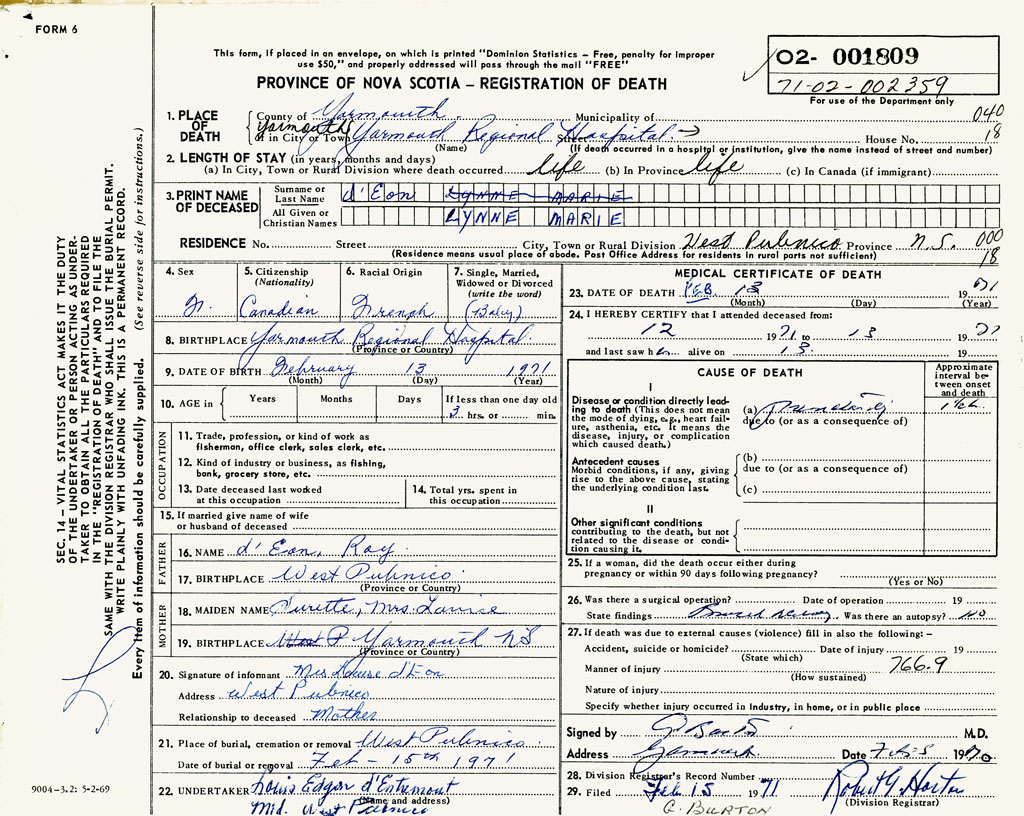 FORM 6
This form, if placed in an envelope, on which is printed "Dominion Statistics – Free, penalty for improper
use $50," and properly addressed will pass through the mail "FREE"
PROVINCE OF NOVA SCOTIA – REGISTRATION OF DEATH
02- 001809
71-02-002359
For use of the Department only
SEC. 14 – VITAL STATISTICS ACT MAKES IT THE DUTY
OF THE UNDERTAKER OR PERSON ACTING AS UNDER-
TAKER TO OBTAIN ALL THE PARTICULARS REQUIRED
IN THE "REGISTRATION OF DEATH" AND TO FILE THE
SAME WITH THE DIVISION REGISTRAR WHO SHALL ISSUE THE BURIAL PERMIT.
WRITE PLAINLY WITH UNFADING INK. THIS IS A PERMANENT RECORD.
Every item of information should be carefully supplied. (See reverse side for instructions.)
1. PLACE OF DEATH
County of Yarmouth Municipality of 040
or in City or Town Yarmouth Yarmouth Regional Hospital Street House No. 18
(Name) (If death occurred in a hospital or institution, give the name instead of street and number)
2. LENGTH OF STAY (in years, months and days)
(a) In City, Town or Rural Division where death occurred life (b) In Province life (c) In Canada (if immigrant)
3. PRINT NAME OF DECEASED
Surname or Last Name d'Eon LYNNE MARIE
All Given or Christian Names LYNNE MARIE
RESIDENCE No. Street City, Town or Rural Division West Pubnico Province N.S. 000
(Residence means usual place of abode. Post Office Address for residents in rural parts not sufficient) 18
4. Sex
5. Citizenship (Nationality) Canadian
6. Racial Origin French
7. Single, Married, Widowed or Divorced (write the word) (Baby)
8. BIRTHPLACE Yarmouth Regional Hospital
(Province or Country)
9. DATE OF BIRTH February 13 1971
(Month) (Day) (Year)
10. AGE in Years Months Days If less than one day old
3 hrs. or min.
OCCUPATION
11. Trade, profession, or kind of work as
fisherman, office clerk, sales clerk, etc.
12. Kind of industry or business, as fishing,
bank, grocery store, etc.
13. Date deceased last worked
at this occupation
14. Total yrs. spent in
this occupation
15. If married give name of wife
or husband of deceased
FATHER
16. NAME d'Eon, Ray
17. BIRTHPLACE West Pubnico
(Province or Country)
MOTHER
18. MAIDEN NAME Mrs.
19. BIRTHPLACE West P Yarmouth NS
(Province or Country)
20. Signature of informant Mrs Louise d'Eon
Address West Pubnico
Relationship to deceased Mother
21. Place of burial, cremation or removal West Pubnico
Date of burial or removal Feb – 15th 1971
22. UNDERTAKER Louis Edgar d'Entremont
(Name and address)
Mid. West Pubnico
9004-3.2: 5-2-69
MEDICAL CERTIFICATE OF DEATH
23. DATE OF DEATH FEB. 13 1971
(Month) (Day) (Year)
24. I HEREBY CERTIFY that I attended deceased from:
12 1971 to 13 71
and last saw her alive on 13 19
CAUSE OF DEATH
Approximate interval between onset and death
I
Disease or condition directly leading to death (This does not mean the mode of dying, e.g., heart failure, asthenia, etc. It means the disease, injury, or complication which caused death.)
(a) prematurity
due to (or as a consequence of)
Antecedent causes
Morbid conditions, if any, giving rise to the above cause, stating the underlying condition last.
(b)
due to (or as a consequence of)
(c)
II
Other significant conditions contributing to the death, but not related to the disease or condition causing it.
25. If a woman, did the death occur either during
pregnancy or within 90 days following pregnancy?
(Yes or No)
26. Was there a surgical operation? Date of operation 19
State findings Was there an autopsy? no
27. If death was due to external causes (violence) fill in also the following: –
Accident, suicide or homicide? Date of injury 19
(State which)
Manner of injury 766.9
(How sustained)
Nature of injury
Specify whether injury occurred in industry, in home, or in public place
Signed by M.D.
Address Date 1970
28. Division Registrar's Record Number
29. Filed Feb 15 1971 Robert G Horton
(Division Registrar)
G. BURTON